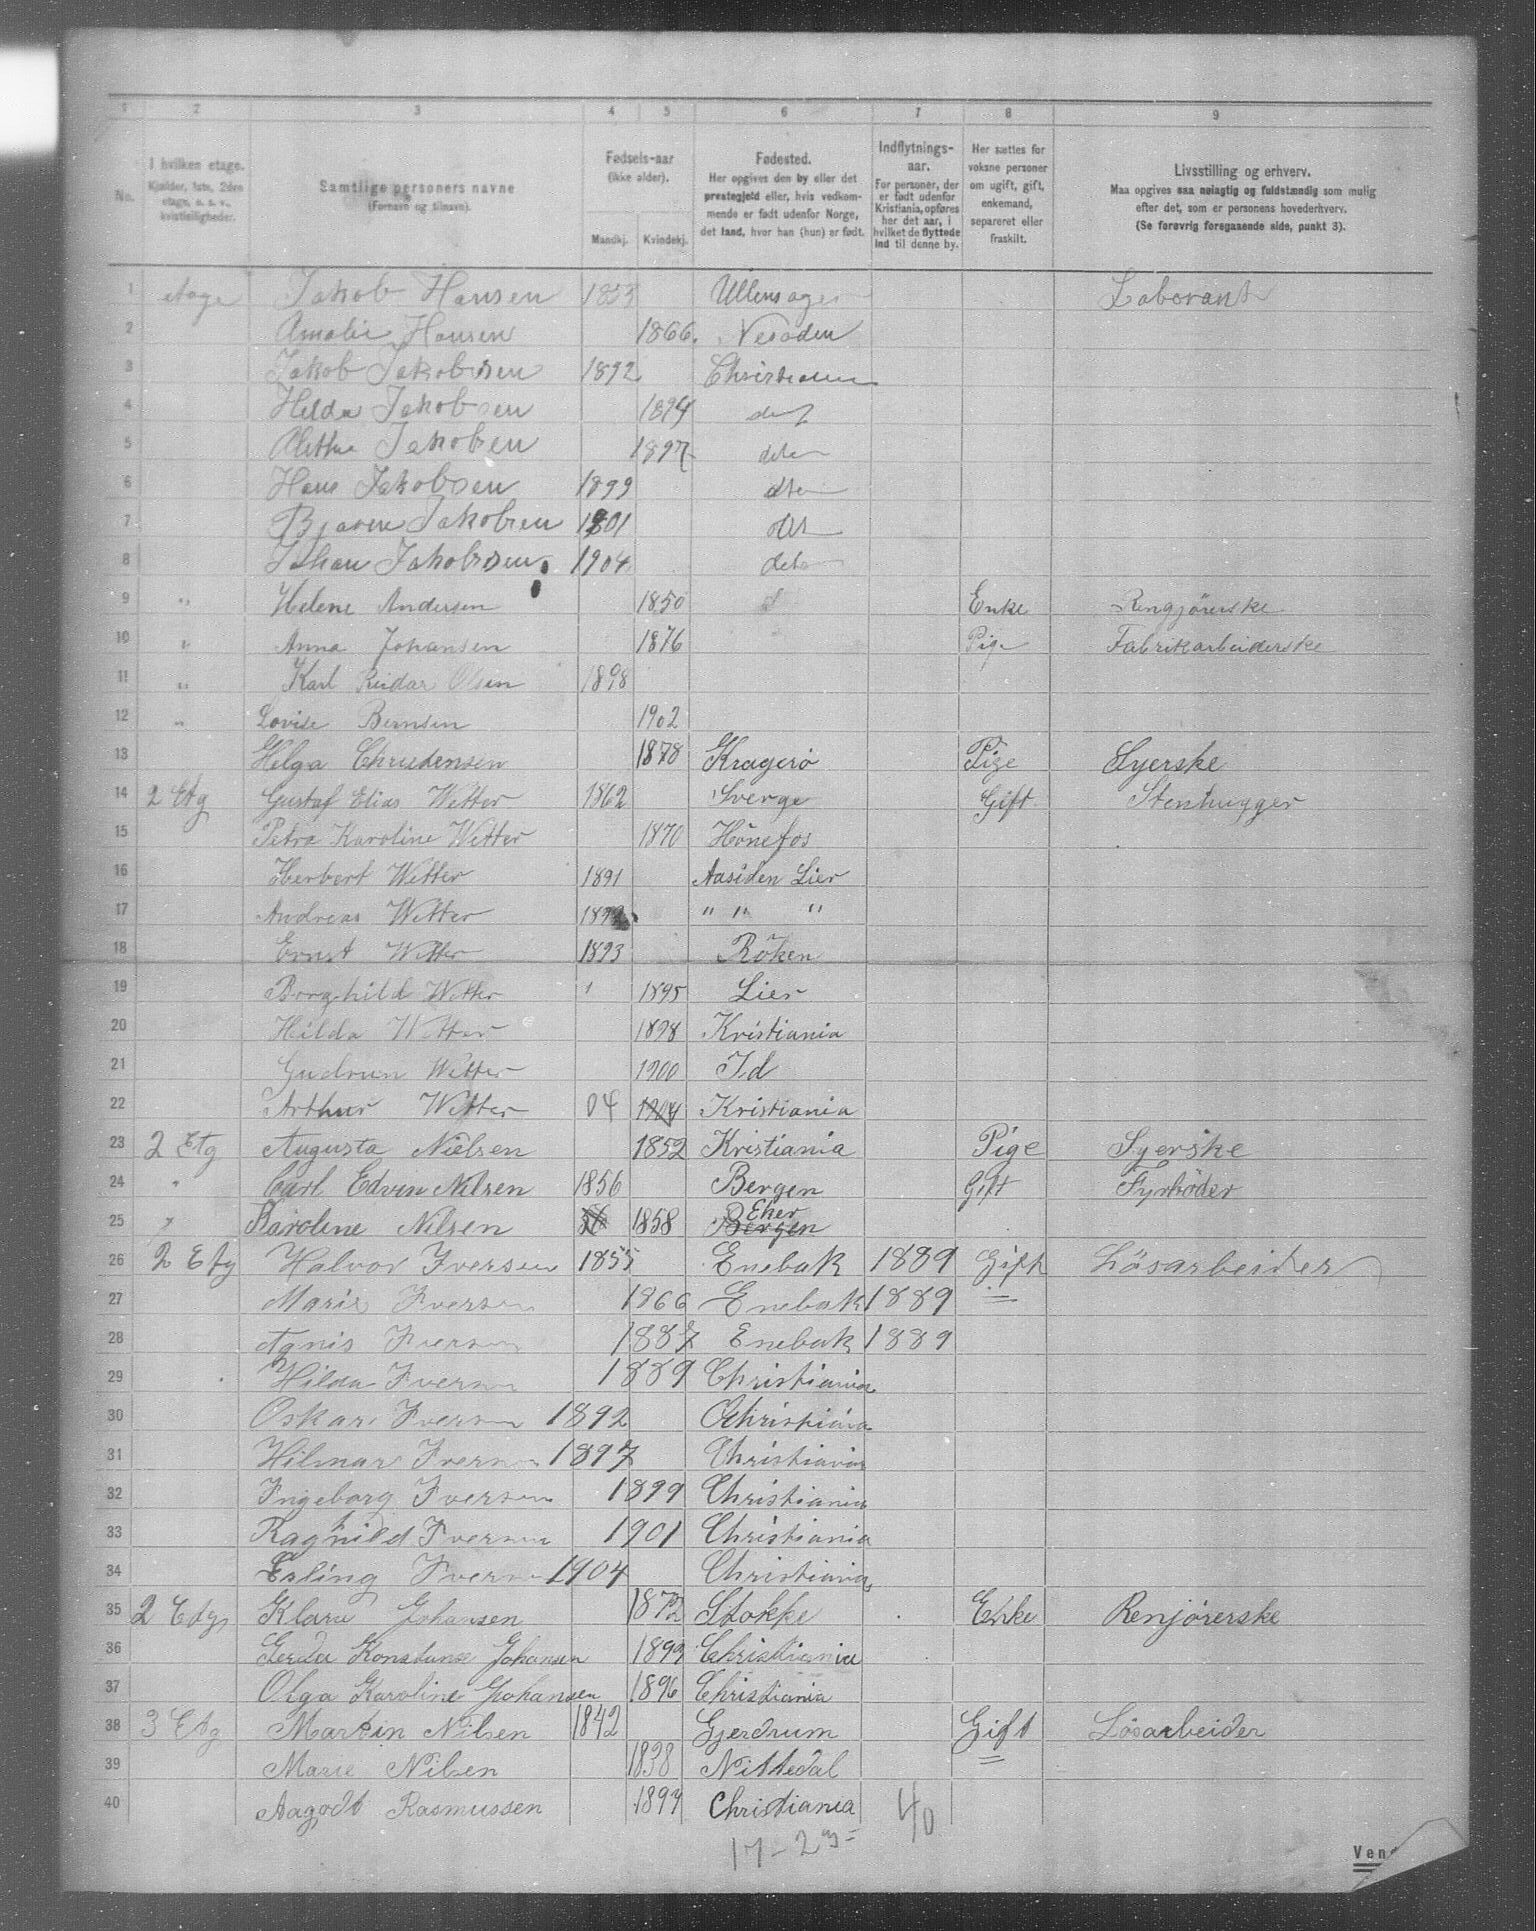 1 2 3 4 5 6 7 8 9
No. I hvilken etage. Kjælder, 1ste, 2den etage, o. s. v., kvistleiligheder. Samtlige personers navne (Fornavn og tilnavn). Fødsels-aar (ikke alder). Mandkj. Kvindekj. Fødested. Her opgives den by eller det prestegjeld eller, hvis vedkommende er født udenfor Norge, det land, hvor han (hun) er født. Indflytnings-aar. For personer, der er født udenfor Kristiania, opføres her det aar, i hvilket de flyttede ind til denne by. Her sættes for voksne personer om ugift, gift, enkemand, separeret eller fraskilt. Livsstilling og erhverv. Maa opgives saa nøiagtig og fuldstændig som mulig efter det, som er personens hovederhverv. (Se forøvrig foregaaende side, punkt 3).
1 etage Jakob Hansen 1853 Ullensager Laborant
2 Amalie Hansen 1866. Nesodden
3 Jakob Jakobsen 1892 Christiania
4 Hilda Jakobsen 1894
5 Jakobsen 1897
6 Hans Jakobsen 1899
7 Bjarne Jakobsen 1901
8 Johan Jakobsen 1904
9 " Helene Andersen 1850 Enke Rengjörerske
10 " Anna Johansen 1876 Pige Fabrikarbeiderske
11 " Karl Reidar Olsen 1898
12 " Lovise Bernsen 1902
13 Helga Christensen 1878 Kragerö Pige Syerske
14 2 Etg Gustaf Elias Wetter 1862 Sverge Gift Stenhugger
15 Petra Karoline Wetter 1870 Hönefos
16 Herbert Wetter 1891 Aasiden Lier
17 Andreas Wetter " " "
18 Ernst Wetter 1893 Röken
19 Borghild Wetter 1895 Lier
20 Hilda Wetter 1898 Kristiania
21 Gudrun Wetter 1900 Id
22 Arthur Wetter 04 1904 Kristiania
23 2 Etg Augusta Nielsen 1852 Kristiania Pige Syerske
24 " Carl Edvin Nilsen 1856 Bergen Gift Fyrböder
25 " Karoline Nilsen 1858 Bergen Eker
26 2 Etg Halvor Iversen 1855 Enebak 1889 Gift Lösarbeider
27 Marie Iversen 1866 Enebak 1889 "
28 Agnis Iversen 1887 Enebak 1889
29 Hilda Iversen 1889 Christiania
30 Oskar Iversen 1892 Christiania
31 Hilmar Iversen 1897 Christiania
32 Ingeborg Iversen 1899 Christiania
33 Ragnhild Iversen 1901 Christiania
34 Erling Iversen 1904 Christiania
35 2 Etg Klara Johansen 1872 Stokke Enke Renjörerske
36 Gerda Konstanse Johansen Christiania
37 Olga Karoline Johansen 1896 Christiania
38 3 Etg Martin Nilsen 1842 Gjerdrum Gift Lösarbeider
39 Marie Nilsen 1838 Nittedal "
40 Aagodt Rasmussen 1894 Christiania
40
17 - 23 =
Vend